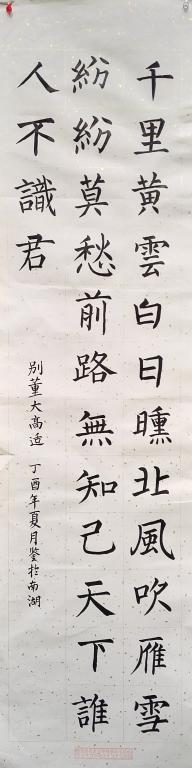 千里黃雲白日曛北風吹雁雪
紛紛莫愁前路無知己天下誰
人不識君
別董大高适 丁酉年夏月鑒於南湖